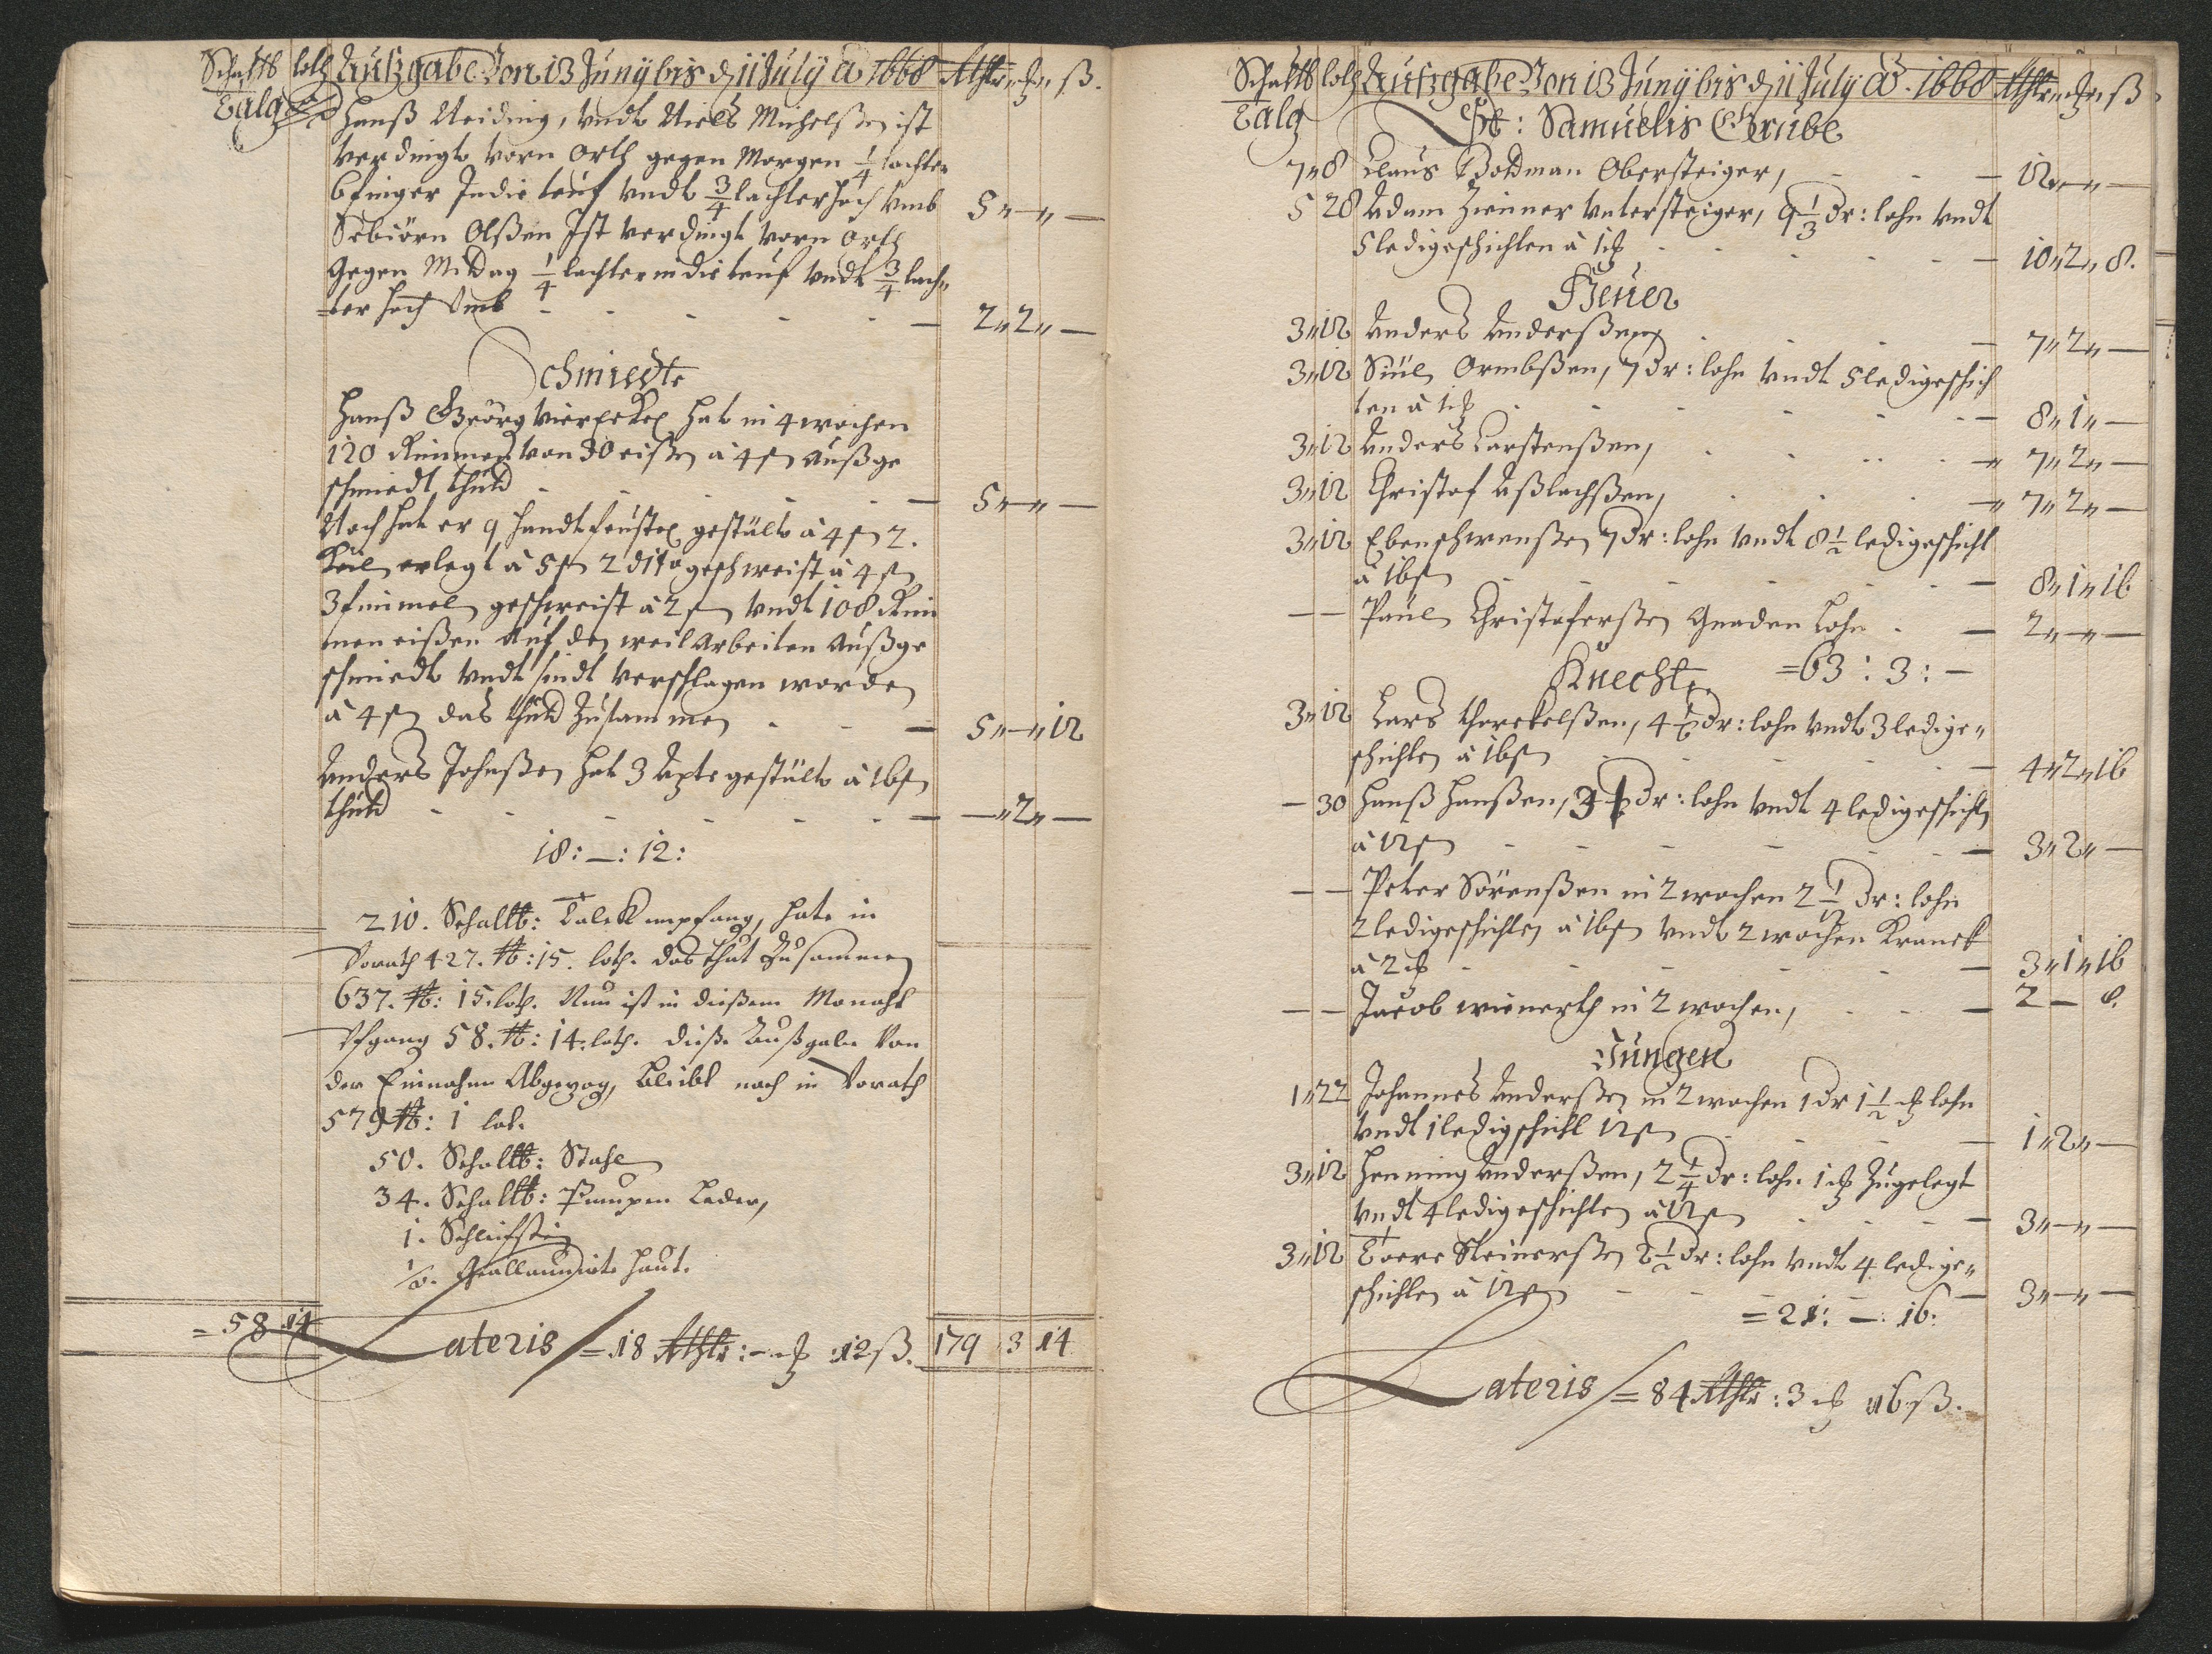 Schaltt℔ loth Außgabe Von 13 Junÿ bis d 11 July Aõ 1668 Rthlr „ ort „ ß.
Talg
Hanß Neiding, undt Niels Michelßen ist
verdingt vorn orth gegen Morgen 1/4 lachter
6 finger In die teuf undt 3/4 lachter hoch umb 5„—„—
Sebiörn Olßen Ist verdingt vorn orth
Gegen Midag 1/4 lachter in die teuf undt 3/4 lach„
=ter hoch Umb - - - - - — 2„2„—
Schmiedte
Hanß Geörg hat in 4 wochen
120 Rimmen von 30 eißen à 4 ß Außge
schmiedt thutt - - - - - — 5„—„—
Noch hat er 9 handtfeustel gestält à 4 ß 2.
Keil erlegt à 5 ß 2 dito geschweist à 4 ß
3 fimmel geschweist à 2 ß undt 108 Rim
men eißen Auf den weil Arbeiten Außge
schmiedt undt sindt verschlagen worden
à 4 ß das thutt Zusammen - - — 5„—„12
Anders Johnßen hat 3 Axte gestält à 16 ß
thutt - - - - - - — —„2„—
18:—:12:
210. Schalt℔: Talck empfang, hate in
Vorath 427. ℔: 15. loth. das thut Zusammen
637. ℔: 15. loth. Nun ist in dießem Monaht
Ufgang 58. ℔: 14. loth. dieße Außgabe Von
der Einnahme Abgezog, bleibt noch in Vorath
579 ℔: 1 lot.
50. Schalt℔: Stahl
34. Schalt℔: Pumpen Leder,
1. Schleifstein
haut.
= 58 14 Lateris = 18 Rthlr: — ort : 12 ß. 179 3 14
Schaltt℔ loth Außgabe Von 13 Junÿ bis d 11 July Aõ. 1668 Rthlr „ ort „ ß.
Talg St: Samuelis Grube
7„8 Claus Boldman Obersteiger, - - — 12„—„—
5 28 Adam Zienner Untersteiger, 9 1/3 dr: lohn undt
5 ledigeschichten à 1 ort - - - - - — 10„2„8.
Heuer
3„12 Anders Anderßen, - - - — 7„2„—
3„12 Siul Ormbßen, 7 dr: lohn undt 5 ledigeschich
ten à 1 ort - - - - - — 8„1„—
3„12 Anders Carstenßen, - - - - — 7„2„—
3„12 Christof Aßlachßen, - - - — 7„2„—
3„12 Ebenschwenßen 7 dr: lohn undt 8 1/2 ledigeschicht
à 16 ß - - - - - - — 8„1„16
— — Paul Christoferßen Gnaden Lohn - — 2„—„—
Knechte =63: 3: —
3„12 Lars thorekelßen, 4 1/2 dr: lohn undt 3 ledige„
schichten à 16 ß - - - - - — 4„2„16
— 30 Hanß Hanßen, 3 dr: lohn undt 4 ledigeschichten
à 12 ß - - - - - - — 3„2„—
— — Peter Sörenßen in 2 wochen 2 1/12 dr: lohn
2 ledigeschichten à 16 ß undt 2 wochen Kranck
à 2 ort - - - - - — 3„1„16
— — Jacob wienerth in 2 wochen, - - — 2 — 8.
Jungen
1„22 Johannes Anderßen in 2 wochen 1 dr 1 1/2 ort lohn
undt 1 ledigschicht 12 ß - - - — 1„2„—
3„12 Henning Anderßen, 2 1/4 dr: lohn 1 ort Zugelegt
undt 4 ledigeschichten à 12 ß - - - — 3„—„—
3„12 Toere Steinerßen 2 1/2 dr: lohn undt 4 ledige„
schichten à 12 ß - - - - - — 3„—„—
= 21: —: 16:
Lateris = 84 Rthlr: 3 ort 16 ß.